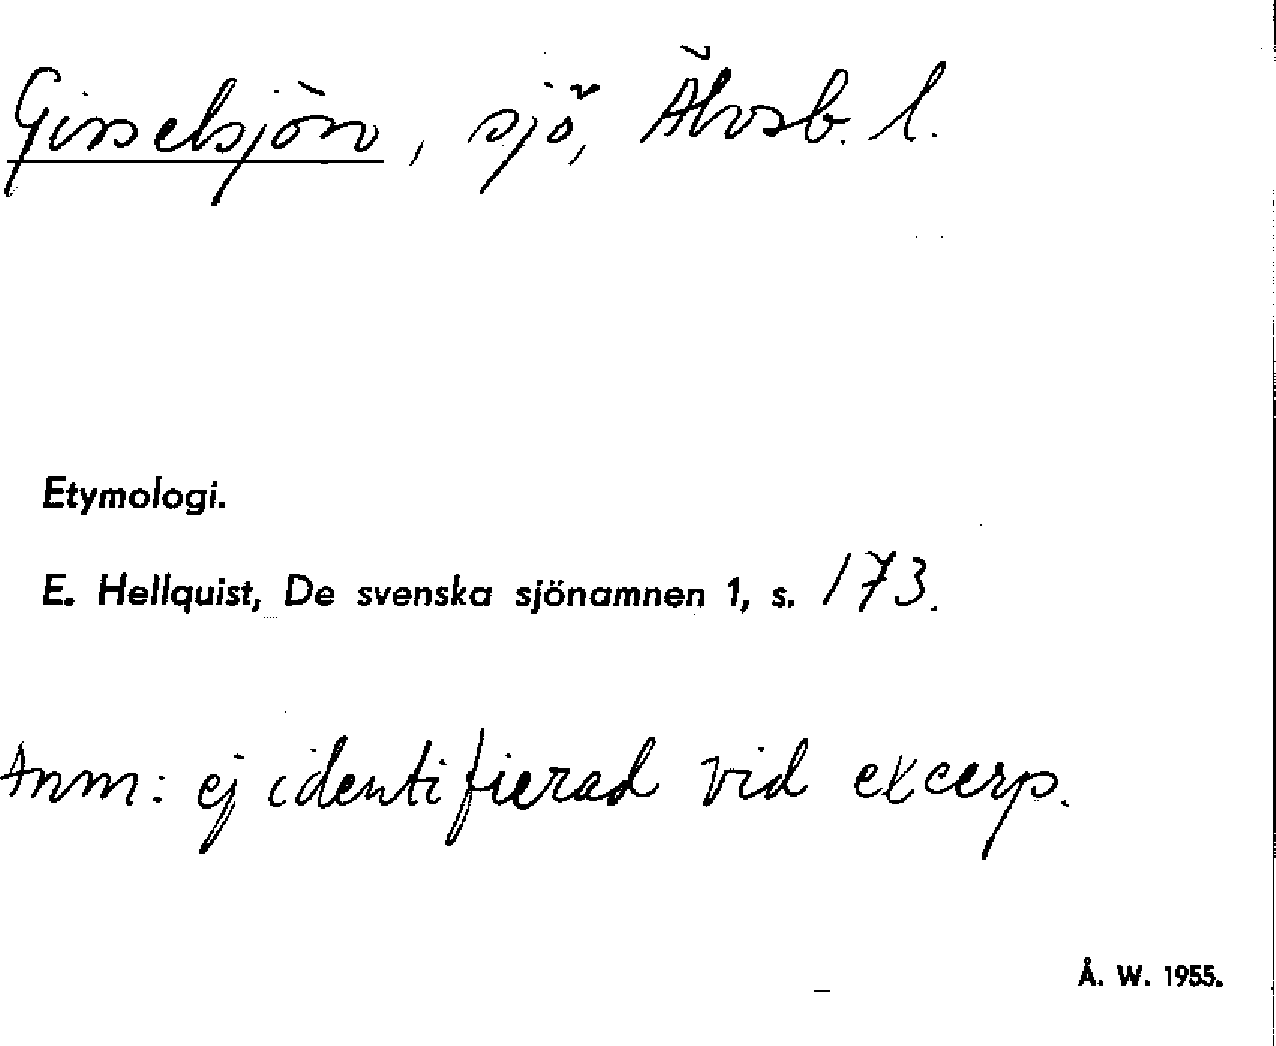 Gisselsjön, sjö, Älvsb. l.
Etymologi.
E. Hellquist, De svenska sjönamnen 1, s. 173.
Anm: ej identifierad vid excerp.
Å. W. 1955.